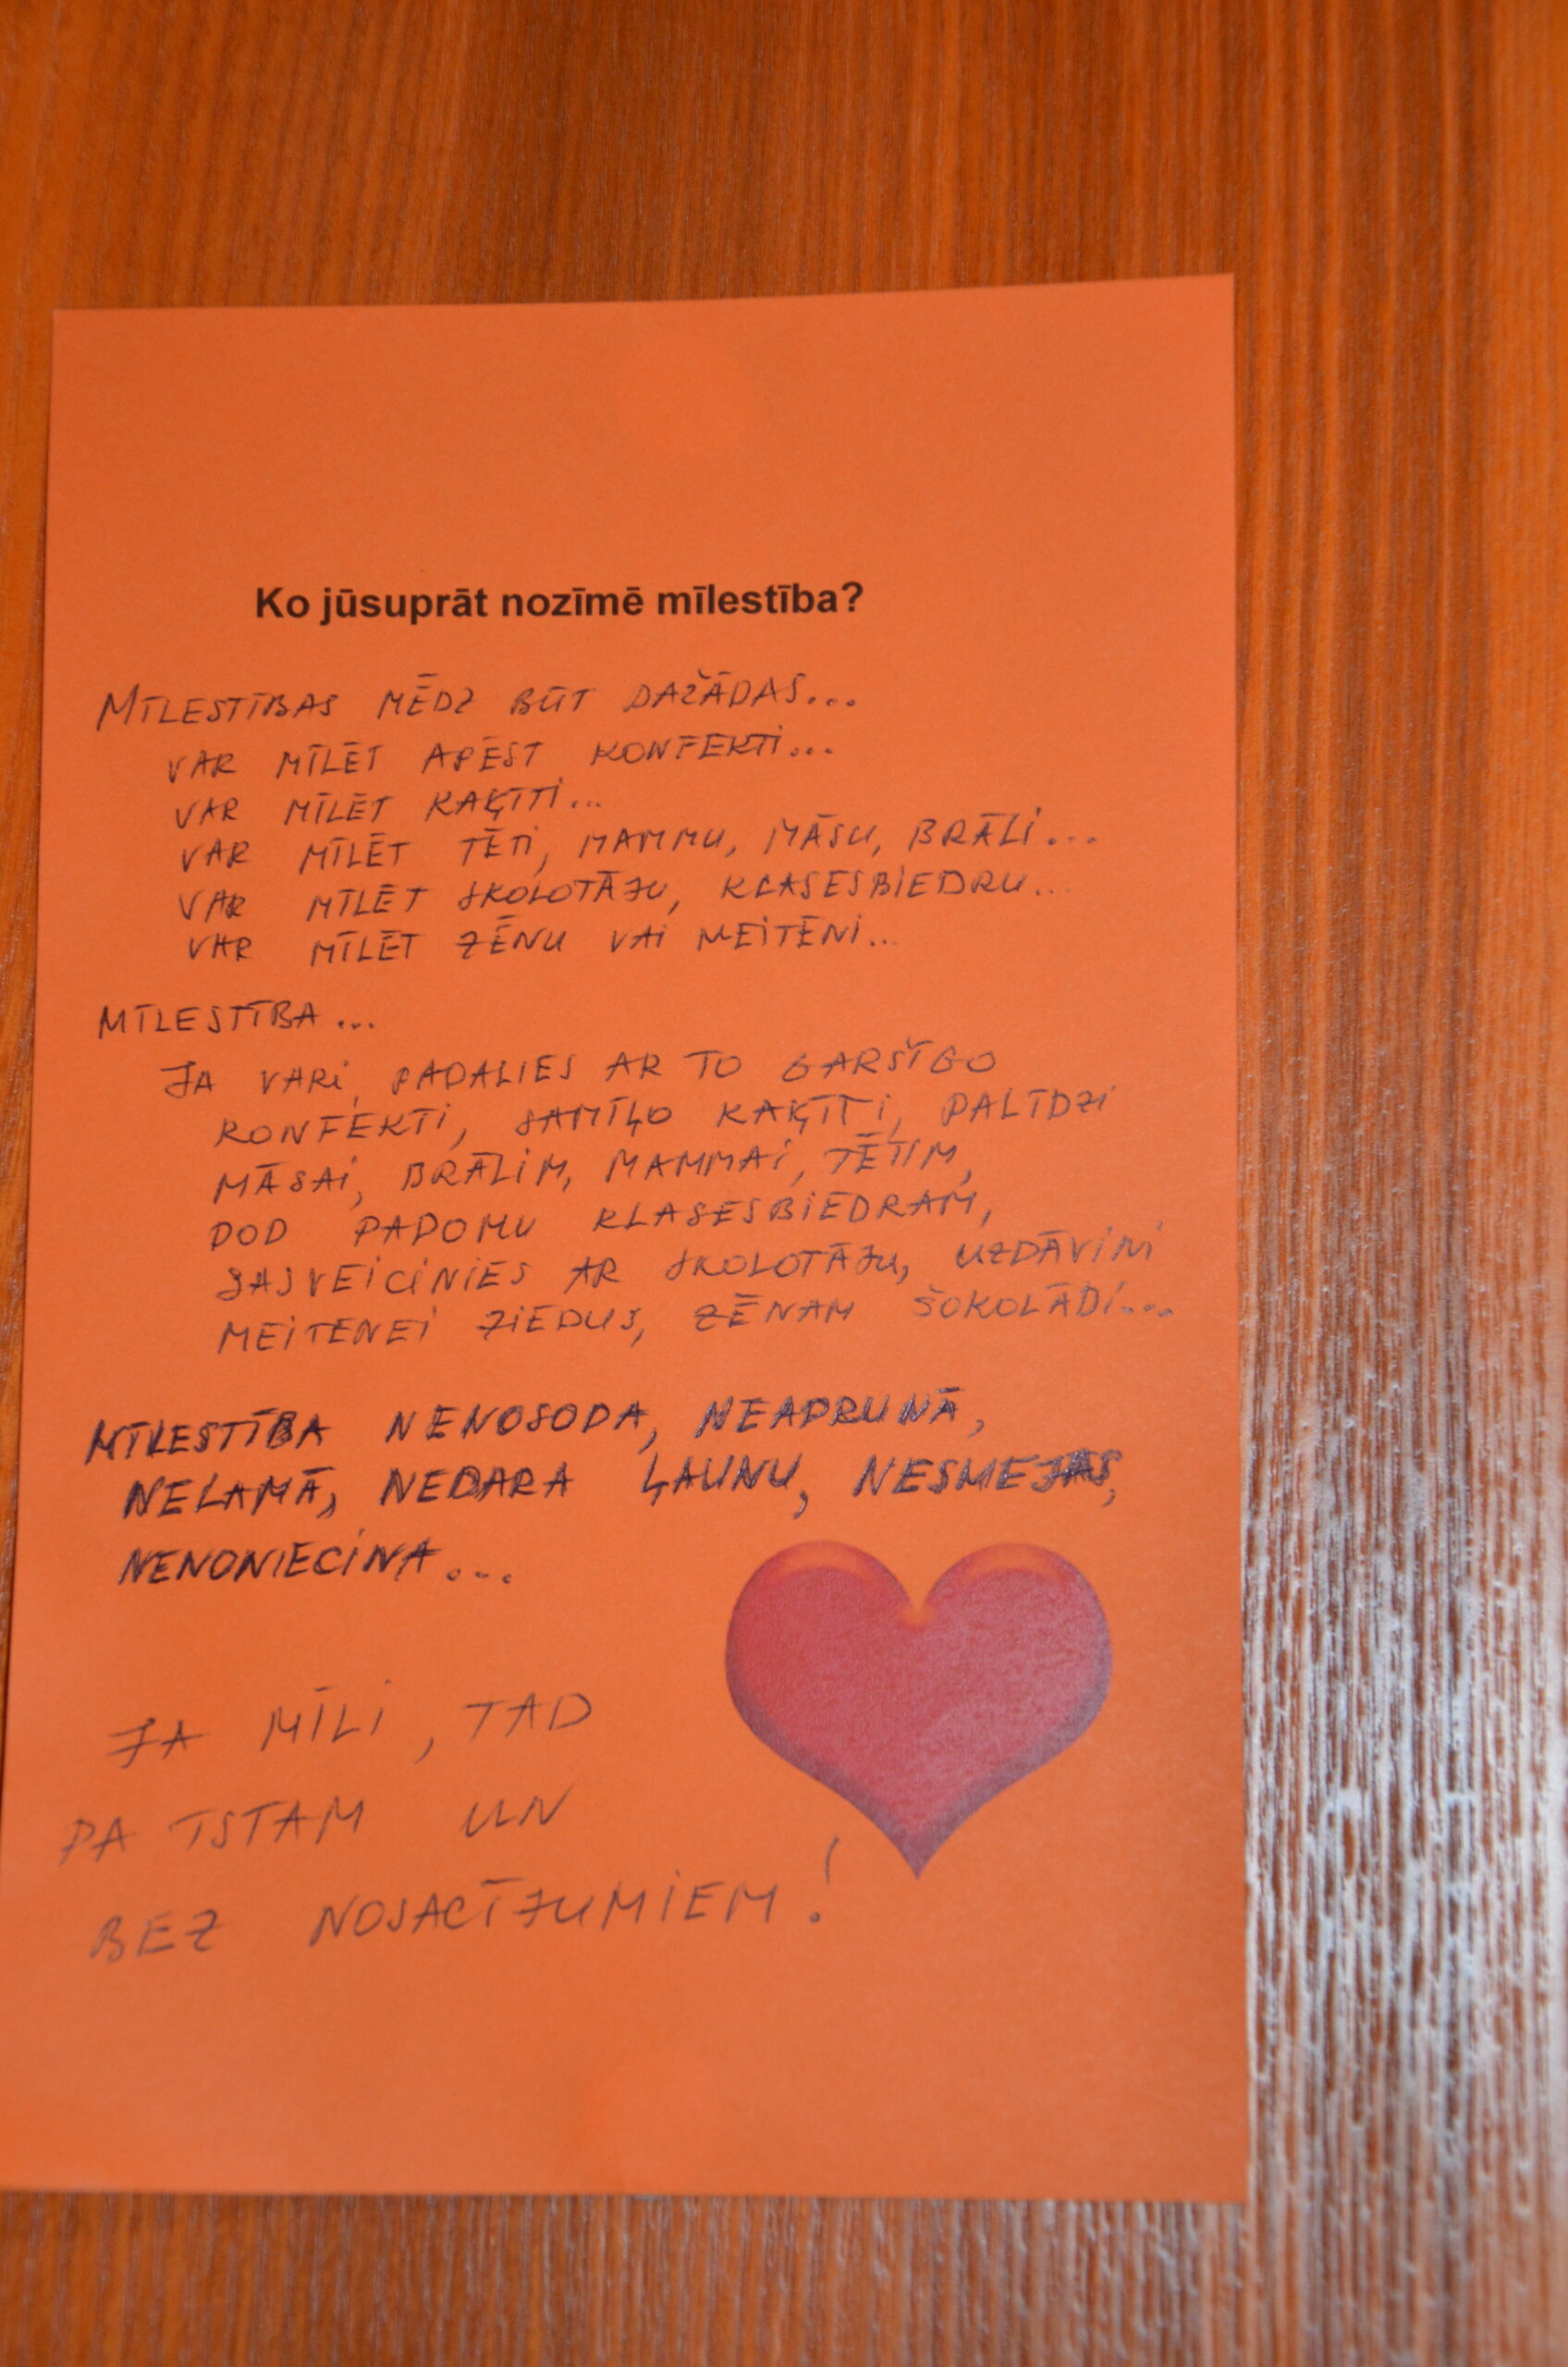 Ko jūsuprāt nozīmē mīlestība?
MĪLESTĪBAS MĒDZ BŪT DAŽĀDAS...
VAR MĪLĒT APĒST KONFEKTI...
VAR MĪLĒT KAĶĪTI...
VAR MĪLĒT TĒTI, MAMMU, MĀSU, BRĀLI...
VAR MĪLĒT SKOLOTĀJU, KLASESBIEDRU...
VAR MĪLĒT ZĒNU VAI MEITENI...
MĪLESTĪBA...
JA VARI, PADALIES AR TO GARŠĪGO
KONFEKTI, SAMĪĻO KAĶĪTI, PALĪDZI
MĀSAI, BRĀLIM, MAMMAI, TĒTIM,
DOD PADOMU KLASESBIEDRAM,
SASVEICINIES AR SKOLOTĀJU, UZDĀVINI
MEITENEI ZIEDUS, ZĒNAM ŠOKOLĀDI....
MĪLESTĪBA NENOSODA, NEAPRUNĀ,
NELAMĀ, NEDARA ĻAUNU, NESMEJAS,
NENONIECINA...
JA MĪLI, TAD
PA ĪSTAM UN
BEZ NOSACĪJUMIEM!